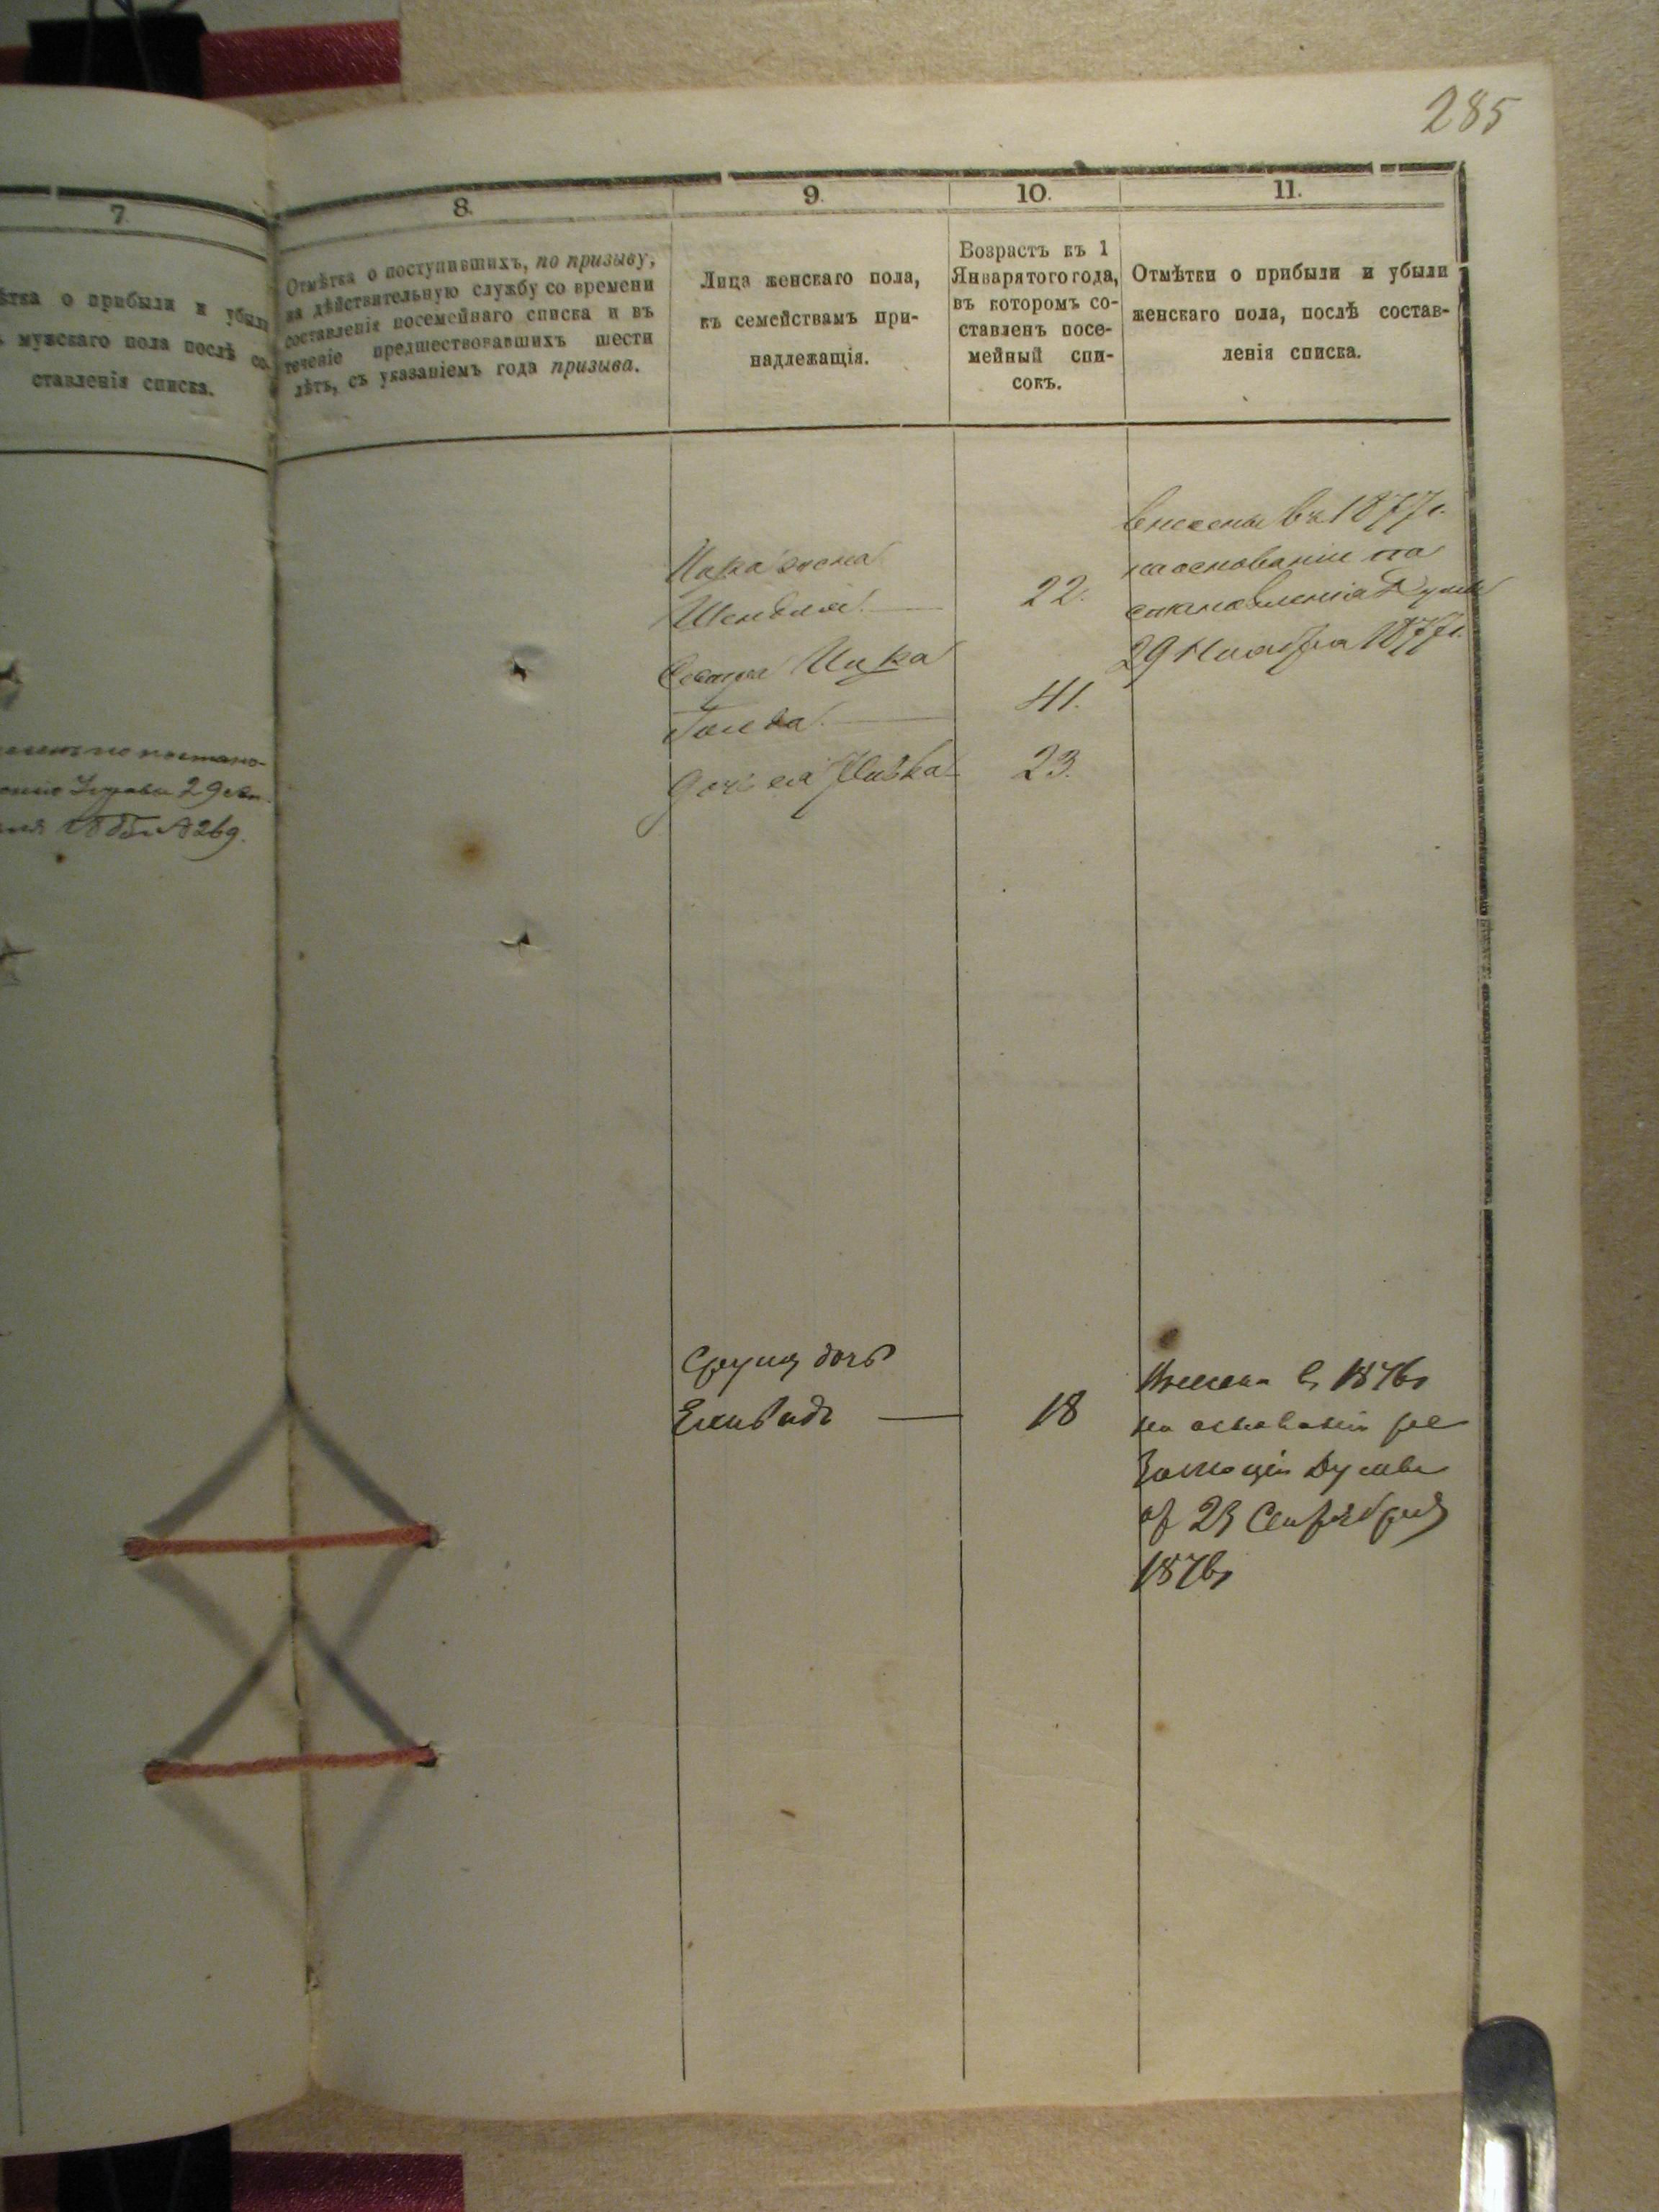 285
7.
о прибыли и убыли
мужскаго пола послѣ со-
ставленія списка.
29
269.
8.
Отмѣтка о поступившихъ, по призыву,
на дѣйствительную службу со времени
составленія посемейнаго списка и въ
теченіе предшествовавшихъ шести
лѣтъ, съ указаніемъ года призыва.
9.
Лица женскаго пола,
къ семействамъ при-
надлежащія.
10.
Возрастъ къ 1
Января того года,
въ которомъ со-
ставленъ посе-
мейный спи-
сокъ.
11.
Отмѣтки о прибыли и убыли
женскаго пола, послѣ состав-
ленія списка.
Ицка жена
Шендля 22.
Сестра Ицка
Голда 41.
Дочь ея Ривка 23.
внесены въ 1877 г.
на основаніи по
становленія Думы
29 Ноября 1877 г.
дочь
18
внесена въ 1876 г
на основаніи ре
золюціи Думы
от 23 Сентября
1876 г